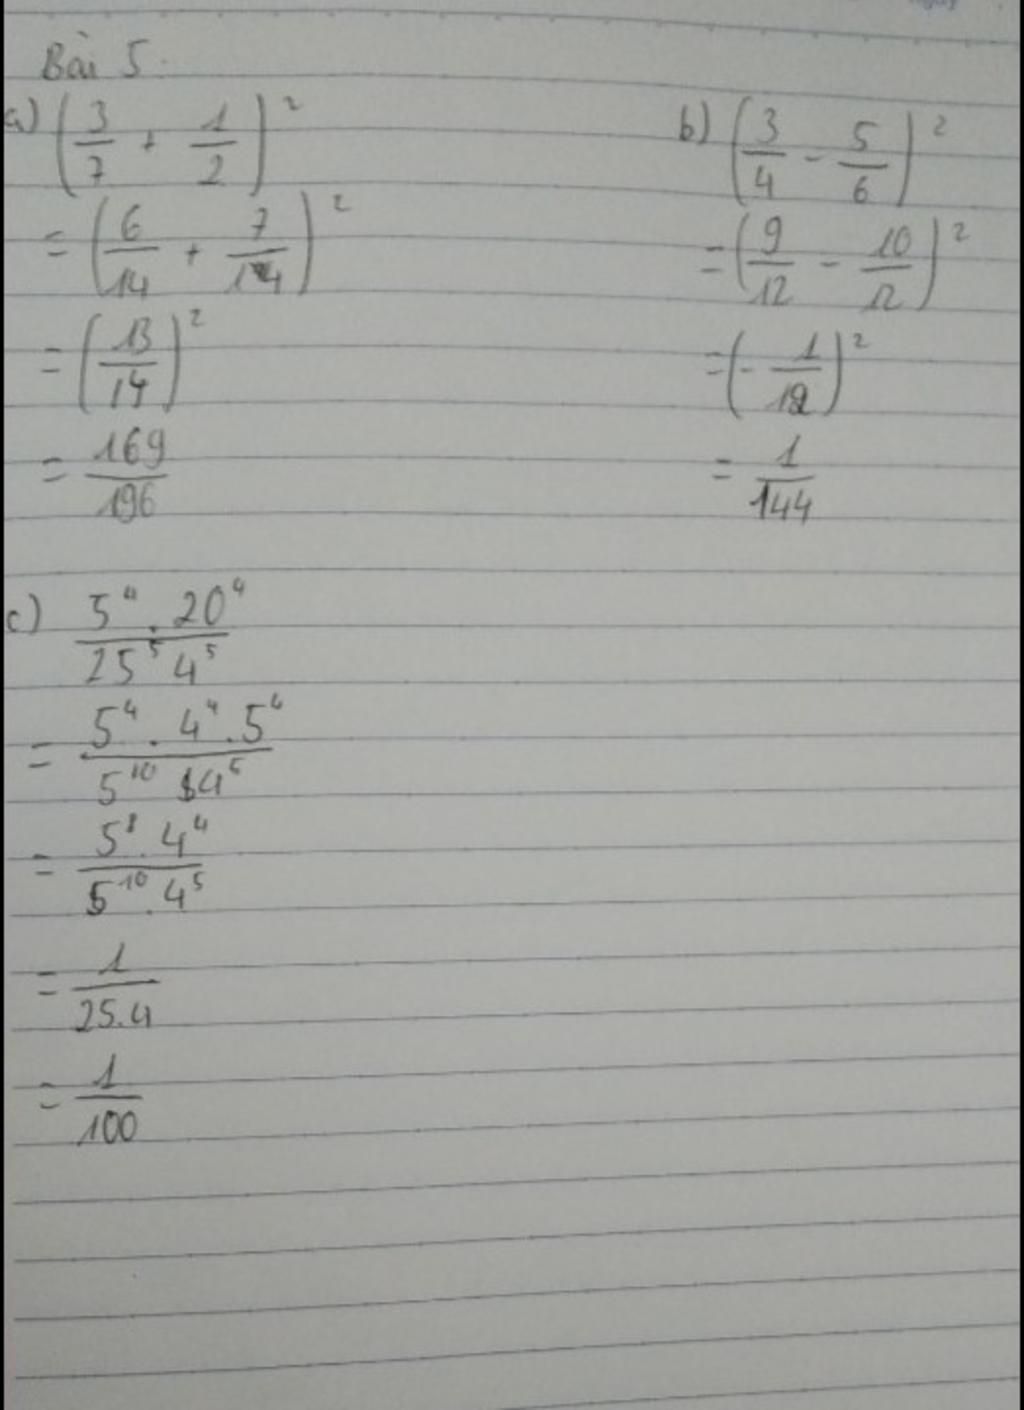 Bài 5.
a) (3/7 + 1/2)²
= (6/14 + 7/14)²
= (13/14)²
= 169/196
b) (3/4 - 5/6)²
= (9/12 - 10/12)²
= (- 1/12)²
= 1/144
c) 5⁴ . 20⁴ / 25⁵ 4⁵
= 5⁴ . 4⁴ . 5⁴ / 5¹⁰ 4⁵
= 5⁸ . 4⁴ / 5¹⁰ . 4⁵
= 1 / 25.4
= 1/100